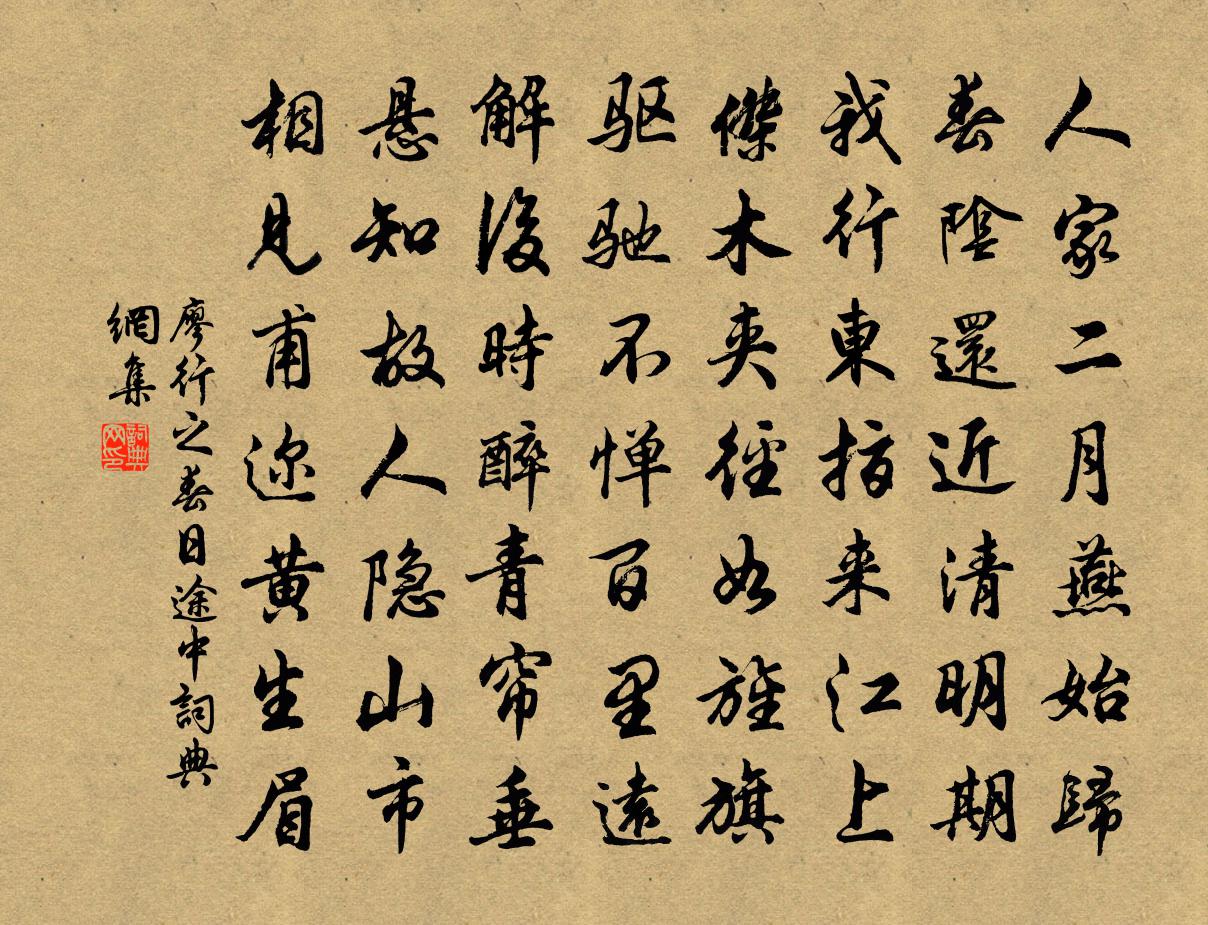 人家二月燕始歸
春陰還近清明期
我行東指来江上
傑木夾徑如旌旗
驱驰不惮百里遠
解後時醉青帘垂
悬知故人隐山市
相見甫迩黄生眉
廖行之春日途中詞典
網集
詞典网印